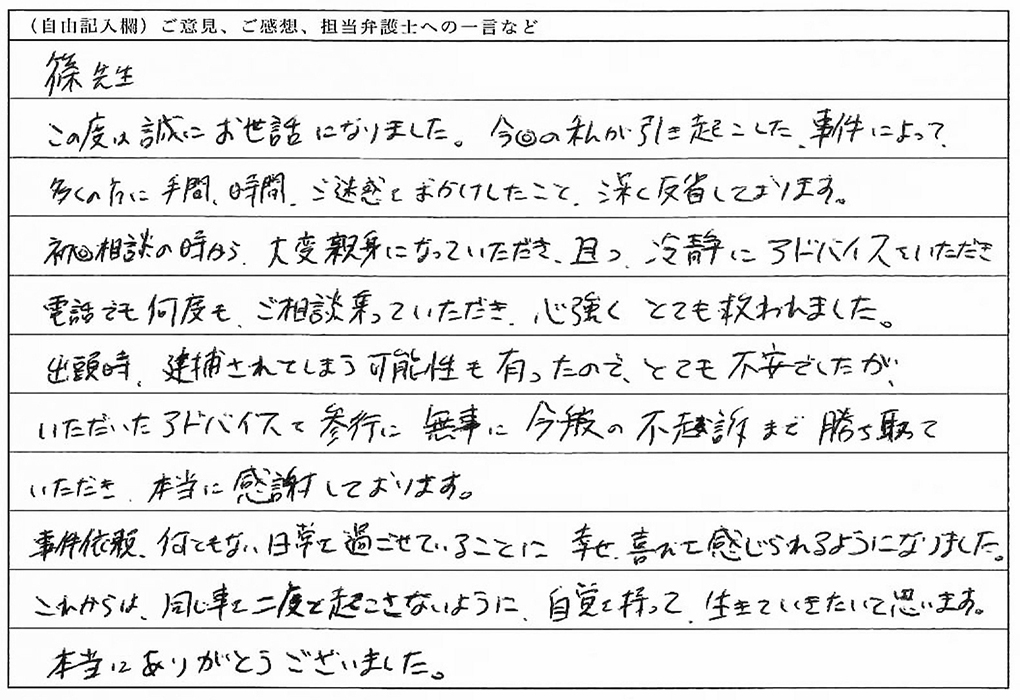 （自由記入欄）ご意見、ご感想、担当弁護士への一言など
篠先生
この度は誠にお世話になりました。今回の私が引き起こした、事件によって、
多くの方に手間、時間、ご迷惑をおかけしたこと、深く反省しております。
初回相談の時から、大変親身になっていただき、且つ、冷静にアドバイスをいただき
電話でも何度も、ご相談乗っていただき、心強くとても救われました。
出頭時、逮捕されてしまう可能性も有ったので、とても不安でしたが、
いただいたアドバイスを参行に無事に今般の不起訴まで勝ち取って
いただき、本当に感謝しております。
事件依頼、何でもない日常を過ごせていることに幸せ、喜びを感じられるようになりました。
これからは、同じ事を二度と起こさないように、自覚を持って、生きていきたいと思います。
本当にありがとうございました。